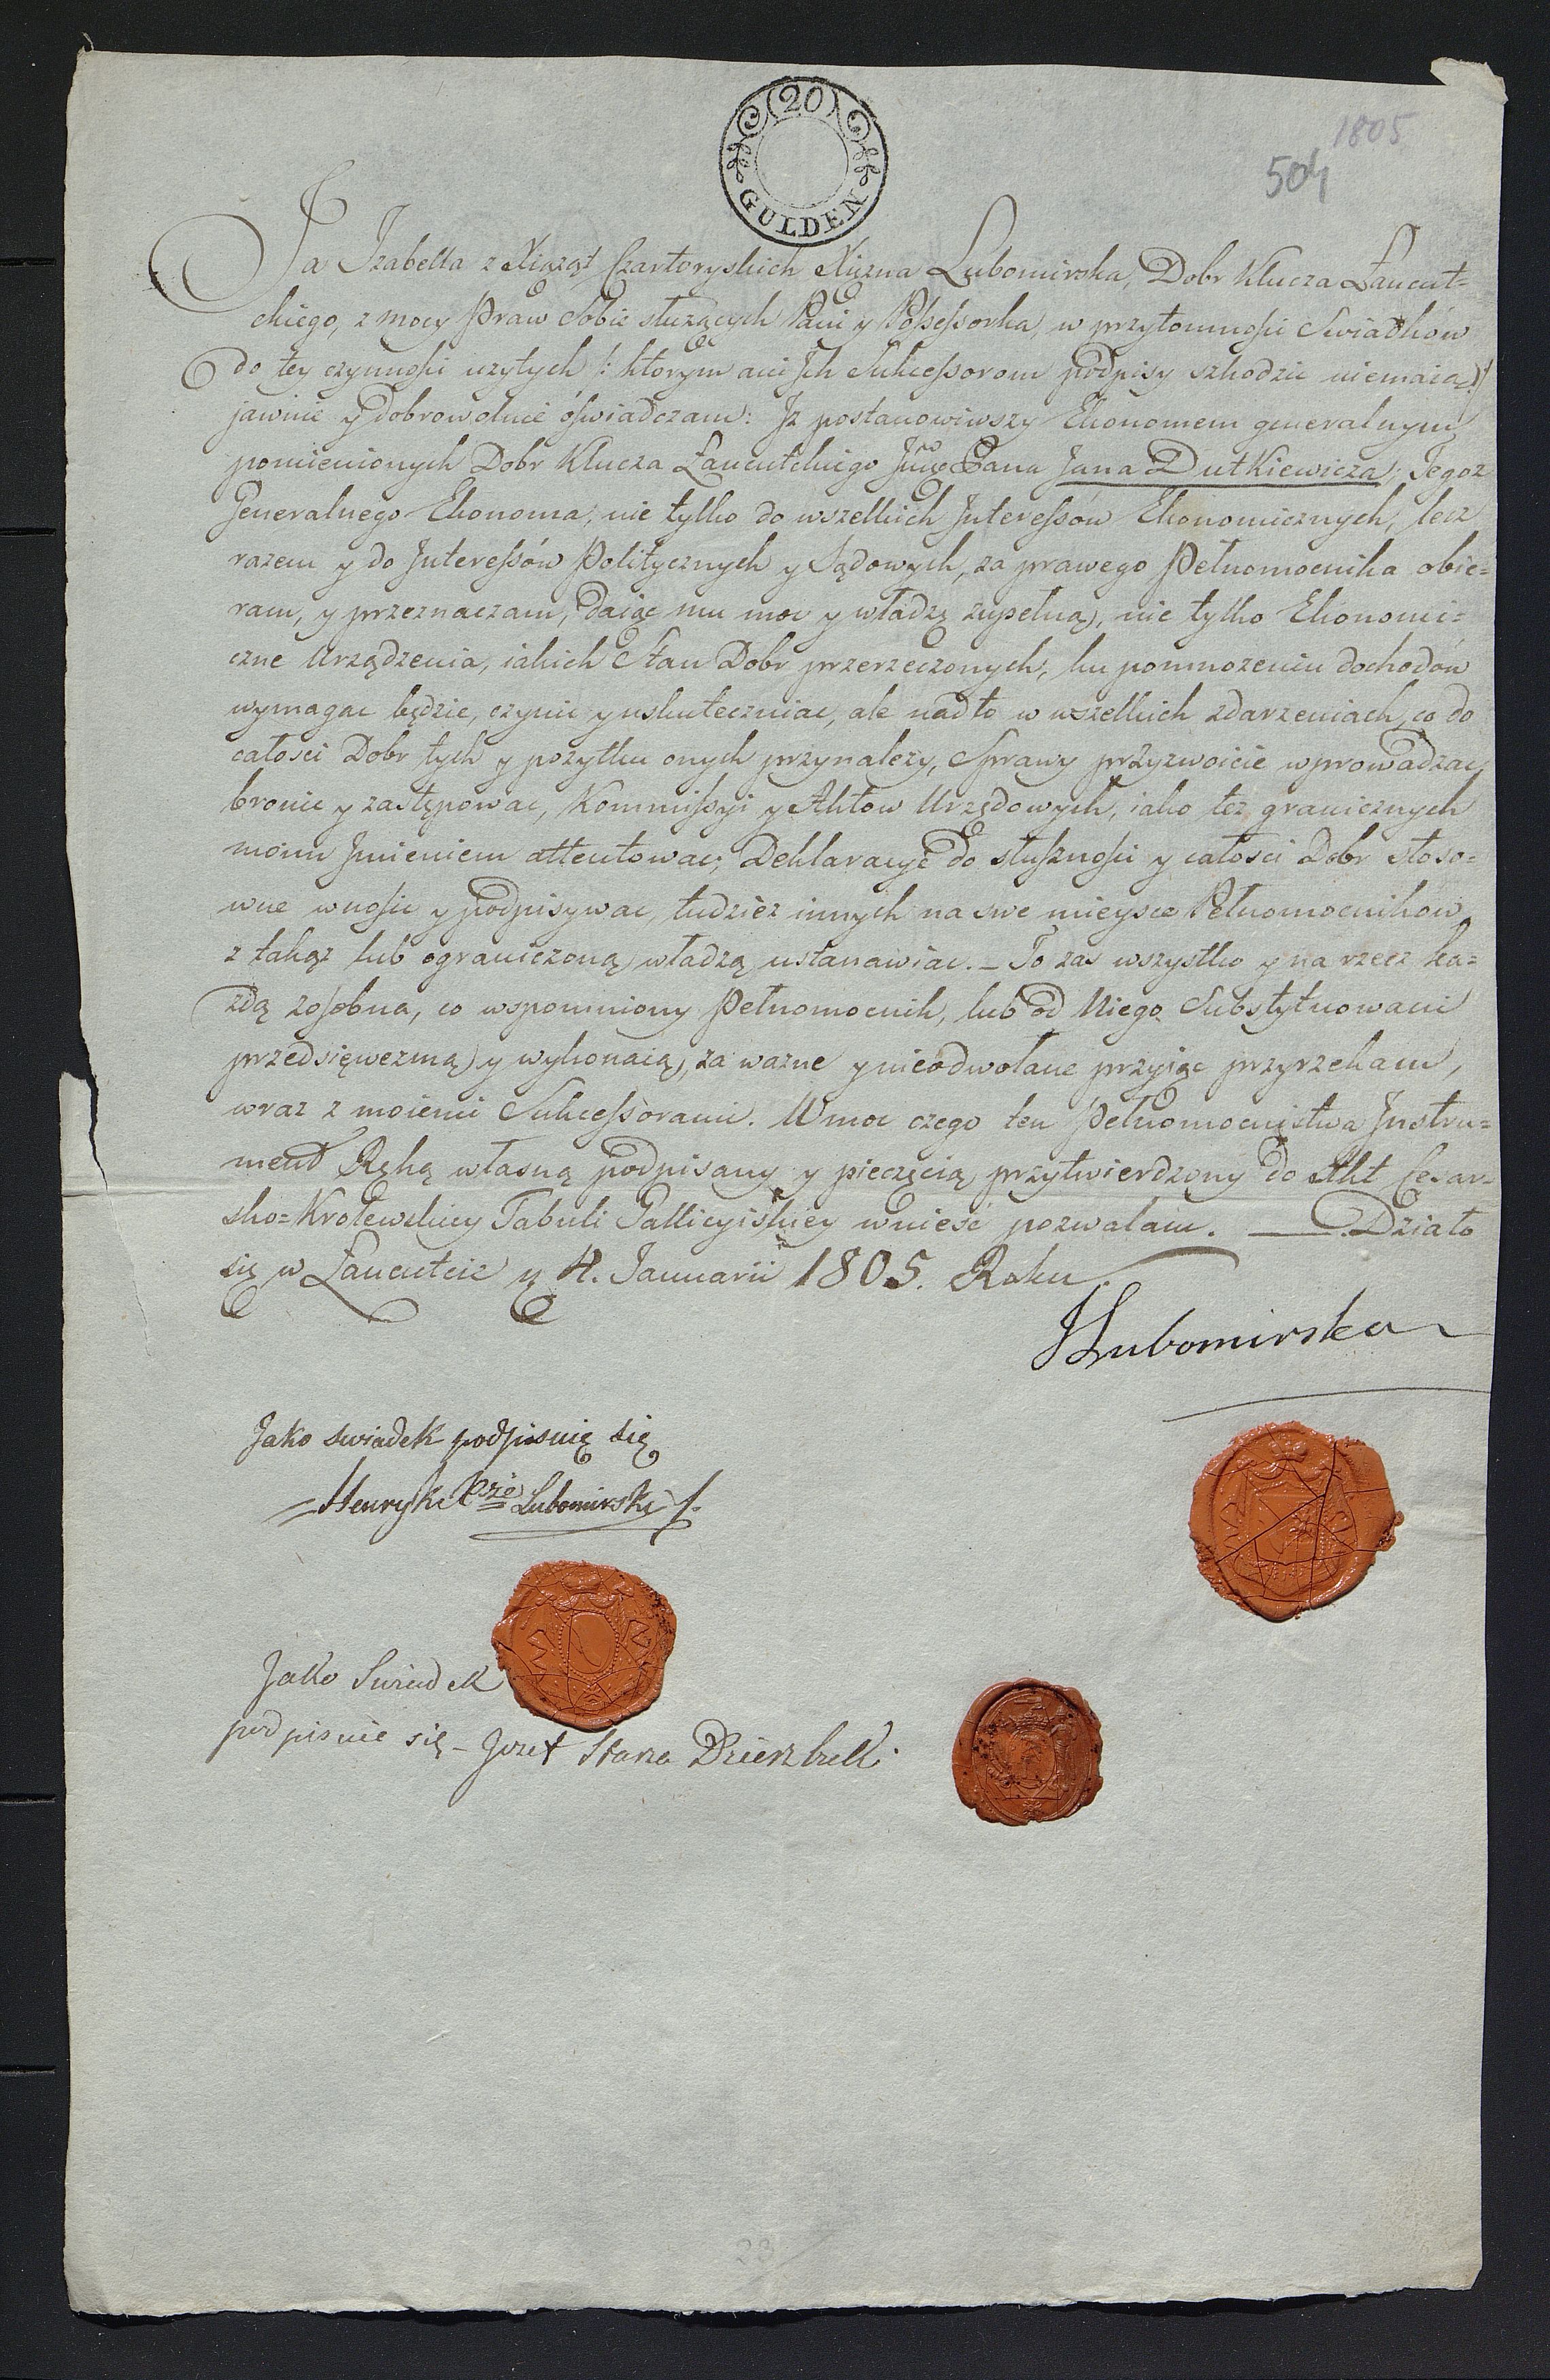 20
GULDEN
1805
504
Ja Izabella z Xiąząt Czartoryskich Xięzna Lubomirska, Dobr Klucza Łancut=
ckiego, z mocy Praw Sobie słuzących Pani y Possessorka, w przytomności Swiadków
do tey czynności uzytych /: którym ani Ich Sukcessorom podpisy szkodzic niemaią :/
jawnie y dobrowolnie óświadczam: Iz postanowiwszy Ekonomem generalnym
pomienionych Dobr Klucza Łancutckiego Jmć Pana Jana Dutkiewicza; Tegoz
Generalnego Ekonoma, nie tylko do wszelkich Interessów Ekonomicznych, lecz
razem y do Interessów Politycznych y Sądowych, za prawego Pełnomocnika obie=
ram, y przeznaczam, daiąc mu moc y władzę zupełną, nie tylko Ekonomi=
czne Urządzenia, iakich Stan Dobr przerzeczonych, ku pomnozeniu dochodów
wymagac będzie, czynic y uskuteczniac, ale nadto w wszelkich zdarzeniach, co do
całosci Dobr tych y pozytku onych przynalezy, Sprawy przyzwoicie wprowadzac,
bronic y zastępowac, Kommissyi y Aktow Urzędowych, iako tez granicznych
moim Imieniem attentowac; Deklaracye do słuszności y całosci Dobr stoso=
wne wnosic y podpisywac, tudziez innych na swe mieysce Pełnomocników
z takąz lub ograniczoną władzą ustanawiac. _ To zas wszystko y na rzecz ka=
zdą zosobna, co wspomniony Pełnomocnik, lub od Niego Substytuowani
przedsięwezmą y wykonaią, za wazne y nieodwołane przyjąc przyrzekam,
wraz z moiemi Sukcessorami. W moc czego ten Pełnomocnistwa Instru=
ment Ręką własną podpisany y pieczęcią przytwierdzony do Akt Cesar=
sko=Krolewskiey Tabuli Gallicyiskiey wnieść pozwalam. ___ Działo
się w Łancutcie y 4. Januarii 1805. Roku.
JLubomirska
Jako swiadek podpisuię się
Henryk Xże Lubomirski
Jako Swiadek
podpisuie się – Jozef Starza Dzierzbicki